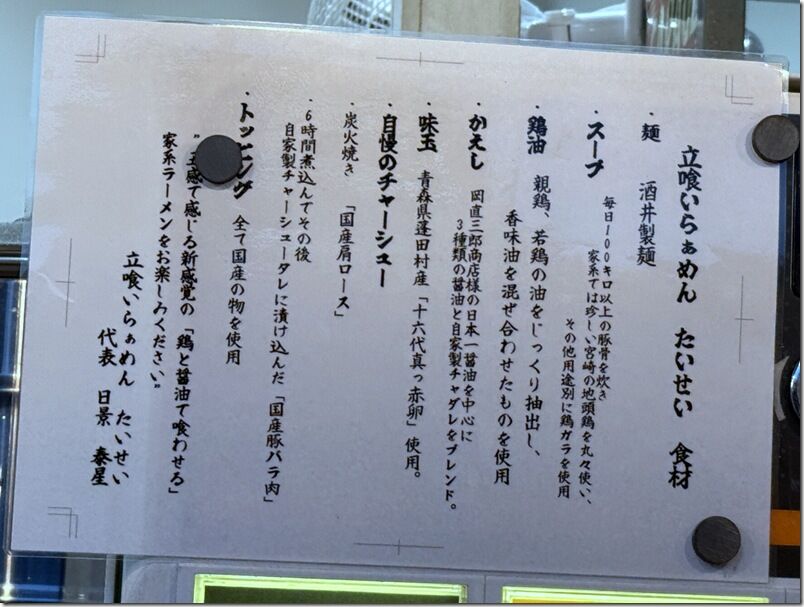 立喰いらぁめん たいせい 食材
・麺 酒井製麺
・スープ 毎日100キロ以上の豚骨を炊き
家系では珍しい宮崎の地頭鶏を丸々使い、
その他用途別に鶏ガラを使用
・鶏油 親鶏、若鶏の油をじっくり抽出し、
香味油を混ぜ合わせたものを使用
・かえし 岡直三郎商店様の日本一醤油を中心に
3種類の醤油と自家製チャダレをブレンド。
・味玉 青森県蓬田村産「十六代真っ赤卵」使用。
・自慢のチャーシュー
・炭火焼き 「国産肩ロース」
・6時間煮込んでその後
自家製チャーシュータレに漬け込んだ「国産豚バラ肉」
・トッピング 全て国産の物を使用
"五感で感じる新感覚の「鶏と醤油で喰わせる」
家系ラーメンをお楽しみください"
立喰いらぁめん たいせい
代表 日景 泰星